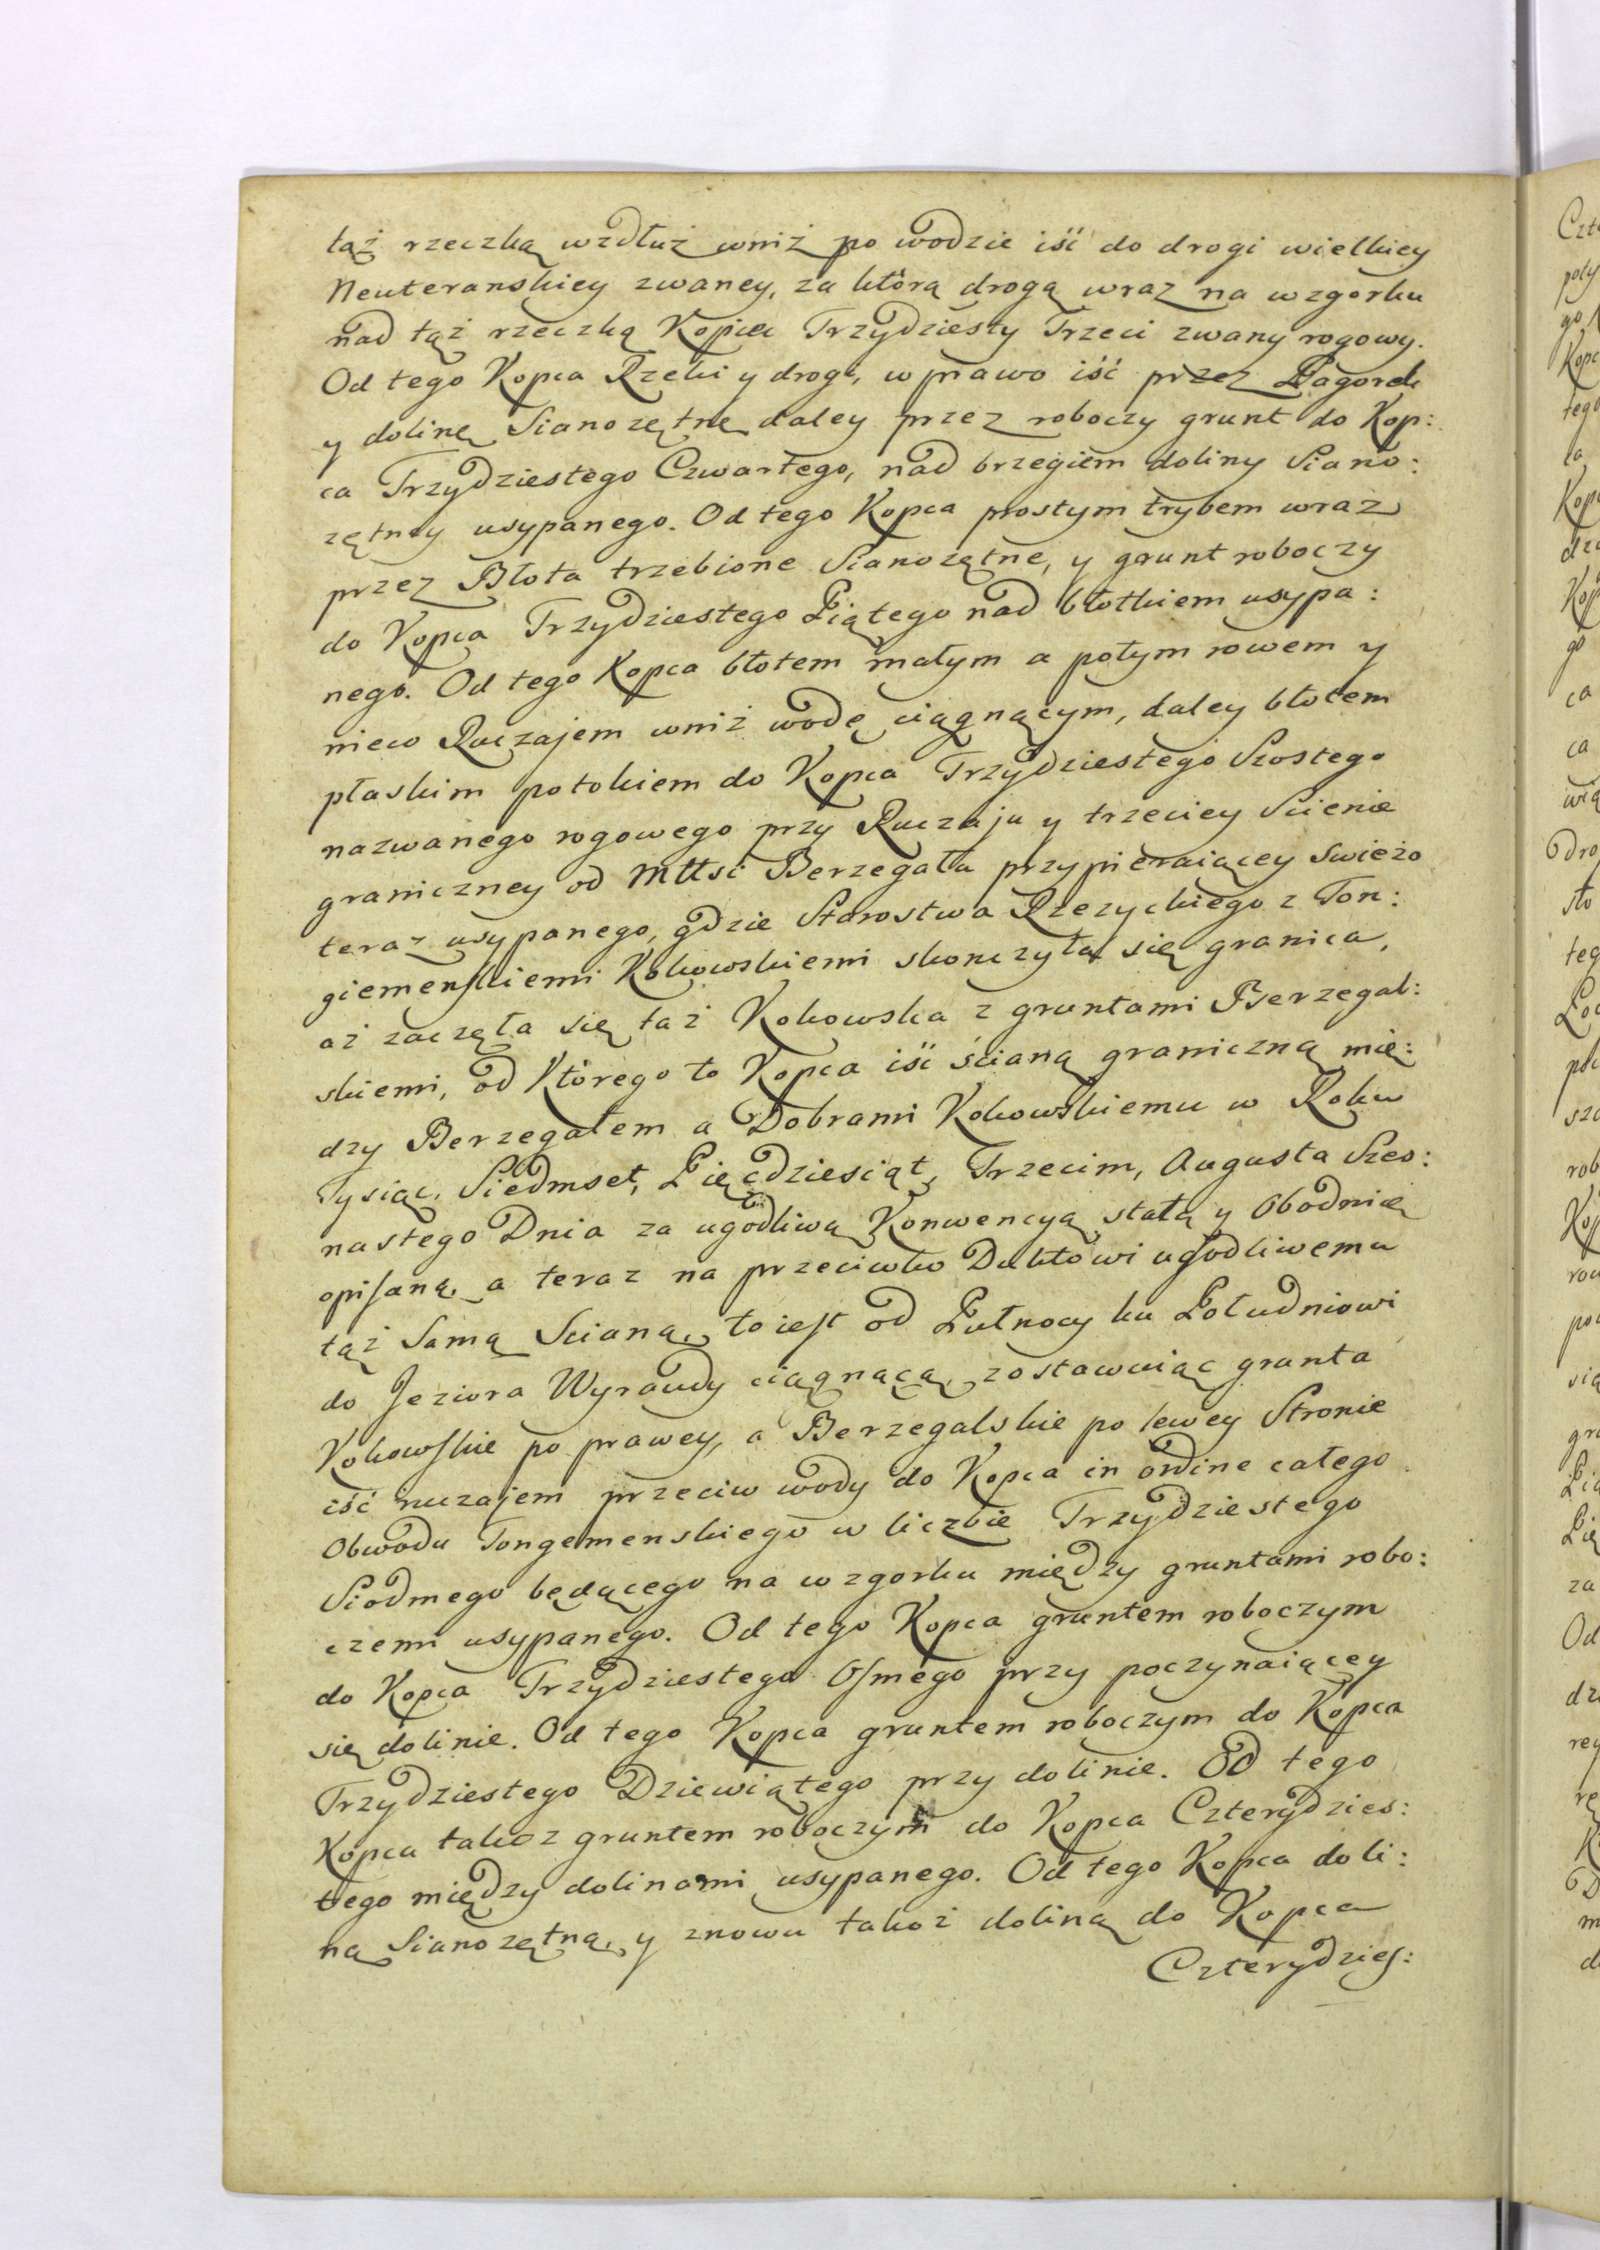 tąż rzeczką wzdłuż wniż po wodzie iść do drogi wielkiey
Neuteranskiey zwaney, za którą drogą wraz na wzgorku
nad tąż rzeczką Kopiec Trzydziesty Trzeci zwany rogowy.
Od tego Kopca Rzeki y drogi, w prawo iść przez Pagorek
y dolinę Sianozętne daley przez roboczy grunt do Kop:
ca Trzydziestego Czwartego, nad brzegiem doliny Siano:
zętney usypanego. Od tego Kopca prostym trybem wraz
przez Błota trzebione Sianozętne, y grunt roboczy
do Kopca Trzydziestego Piątego nad błotkiem usypa:
nego. Od tego Kopca błotem małym a połym rowem y
nieco Ruczajem wniż wodę ciągnącym, daley błotem
płaskim potokiem do Kopca Trzydziestego Szostego
nazwanego rogowego przy Ruczaju y trzeciey Scienie
graniczney od Mttsci Berzegała przypieraiącey Swieżo
teraz usypanego, gdzie Starostwa Rzezyckiego z Ton:
giemenskiemi Kokowskiemi skonczyła się granica,
aż zaczęła się taż Kokowska z gruntami Berzegal:
skiemi, od Którego to Kopca iść ścianą graniczną mię:
dzy Berzegałem a Dobrami Kokowskiemu w Roku
Tysiąc, Siedmset, Pięcdziesiąt, Trzecim, Augusta Szes:
nastego Dnia za ugodliwą Konwencyą stałą y Obodnią
opisaną, a teraz na przeciwko Duktowi ugodliwemu
tąż Samą Scianą, to iest od Pułnocy ku Południowi
do Jeziora Wyraudy ciągnącą, zostawuiąc grunta
Kokowskie po prawey, a Berzegalskie po lewey Stronie
iść ruczajem przeciw wody do Kopca in ordine całego
Obwodu Tongemenskiego w liczbie Trzydziestego
Siodmego będącego na wzgorku między gruntami robo:
czemi usypanego. Od tego Kopca gruntem roboczym
do Kopca Trzydziestego Osmego przy poczynaiącey
się dolinie. Od tego Kopca gruntem roboczym do Kopca
Trzydziestego Dziewiątego przy dolinie. Od tego
Kopca takoz gruntem roboczym do Kopca Czterydzies:
tego między dolinami usypanego. Od tego Kopca doli:
ną Sianozętną, y znowu takoż doliną do Kopca
Czterydzies: